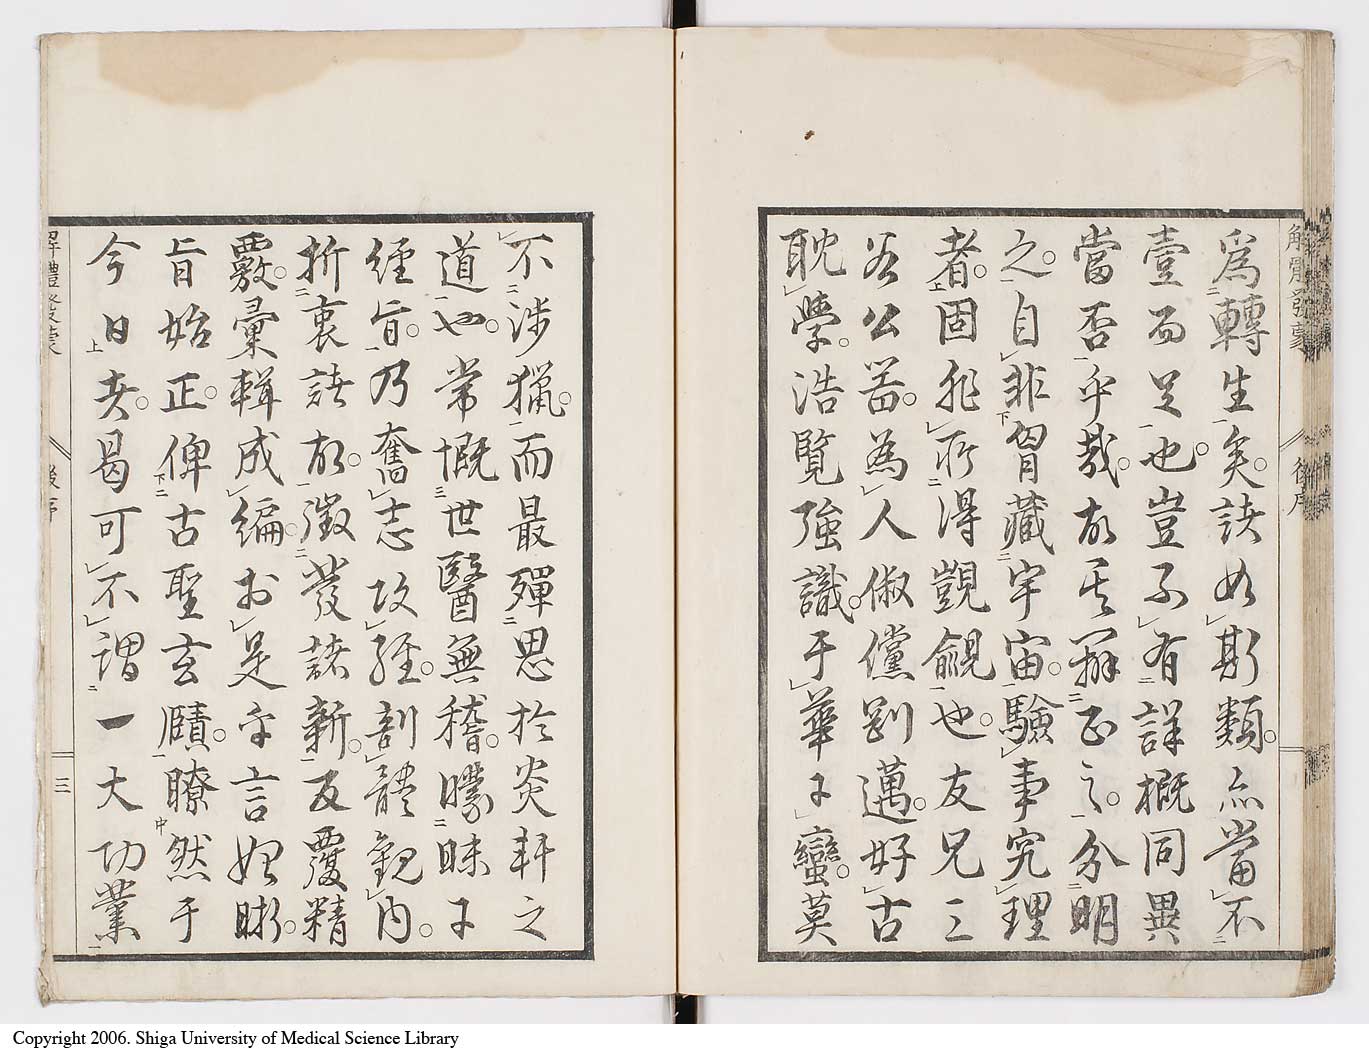 解體發蒙
後序
爲轉生矣。諸如斯類。亦當不
壹而足也。豈不有詳概同異
當否乎哉。故其辨正之。分明
之。自非胷藏宇宙。驗事究理
者。固非所得覬覦也。友兄三
谷公器。為人俶儻邁。好古
耽學。浩覽強識。于華于蠻。莫
不涉獵。而最殫思於炎軒之
道也。常慨世醫無稽。曚昧于
經旨。乃奮志攻経。剖體観内。
折衷諸故。徵發諸新。反覆精
覈。彙輯成編。於是乎言始晣。
旨始正。俾古聖玄賾。瞭然于
今日矣。曷可不謂一大功業
解體發蒙
後序
三
Copyright 2006. Shiga University of Medical Science Library